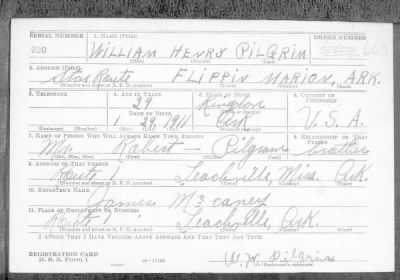 SERIAL NUMBER 1. NAME (Print) ORDER NUMBER
920 WILLIAM HENRY PILGRIM
(First) (Middle) (Last)
2. ADDRESS (Print)
Star Route FLIPPIN MARION, ARK.
(Number and street or R. F. D. number) (Town) (County) (State)
3. TELEPHONE 4. AGE IN YEARS 5. PLACE OF BIRTH 6. COUNTRY OF CITIZENSHIP
29
DATE OF BIRTH
1 29, 1911 Ark. U. S. A.
(Exchange) (Number) (Mo.) (Day) (Yr.) (Town or county) (State or country)
7. NAME OF PERSON WHO WILL ALWAYS KNOW YOUR ADDRESS 8. RELATIONSHIP OF THAT PERSON
Mr. Robert — Pilgram brother
(Mr., Mrs., Miss) (First) (Middle) (Last)
9. ADDRESS OF THAT PERSON
Route 1 Leachville, Miss. Ark.
(Number and street or R. F. D. number) (Town) (County) (State)
10. EMPLOYER'S NAME
James McCaney
11. PLACE OF EMPLOYMENT OR BUSINESS
Route 1 Leachville, Ark.
(Number and street or R. F. D. number) (Town) (County) (State)
I AFFIRM THAT I HAVE VERIFIED ABOVE ANSWERS AND THAT THEY ARE TRUE.
REGISTRATION CARD
D. S. S. Form 1
W. H. Pilgrim
(Registrant's signature)